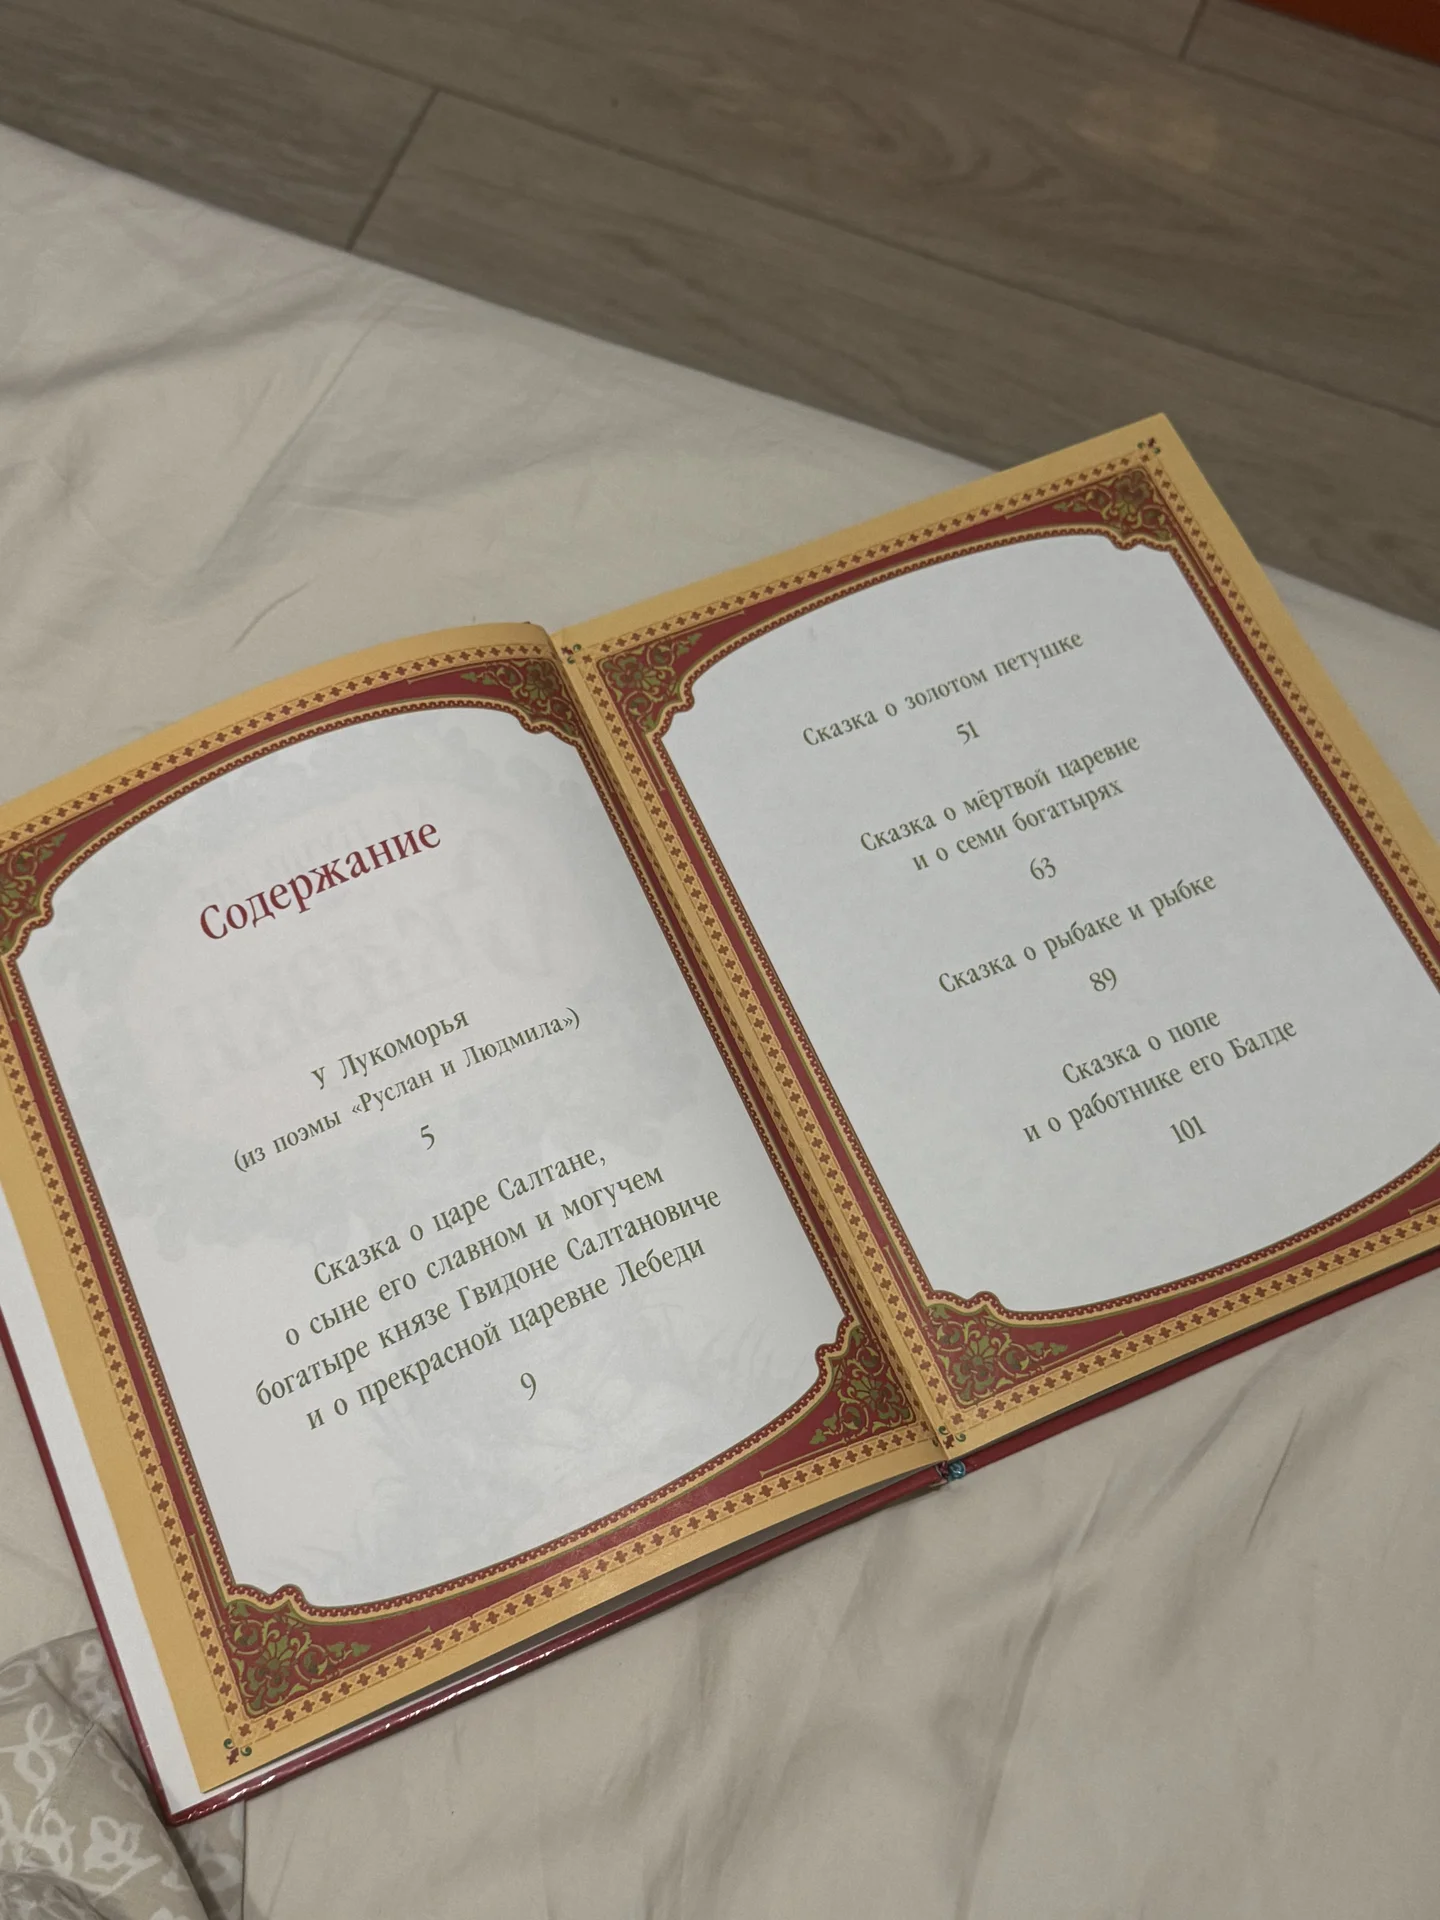 Содержание
у Лукоморья
(из поэмы «Руслан и Людмила»)
5
Сказка о царе Салтане,
о сыне его славном и могучем
богатыре князе Гвидоне Салтановиче
и о прекрасной царевне Лебеди
9
Сказка о золотом петушке
51
Сказка о мёртвой царевне
и о семи богатырях
63
Сказка о рыбаке и рыбке
89
Сказка о попе
и о работнике его Балде
101